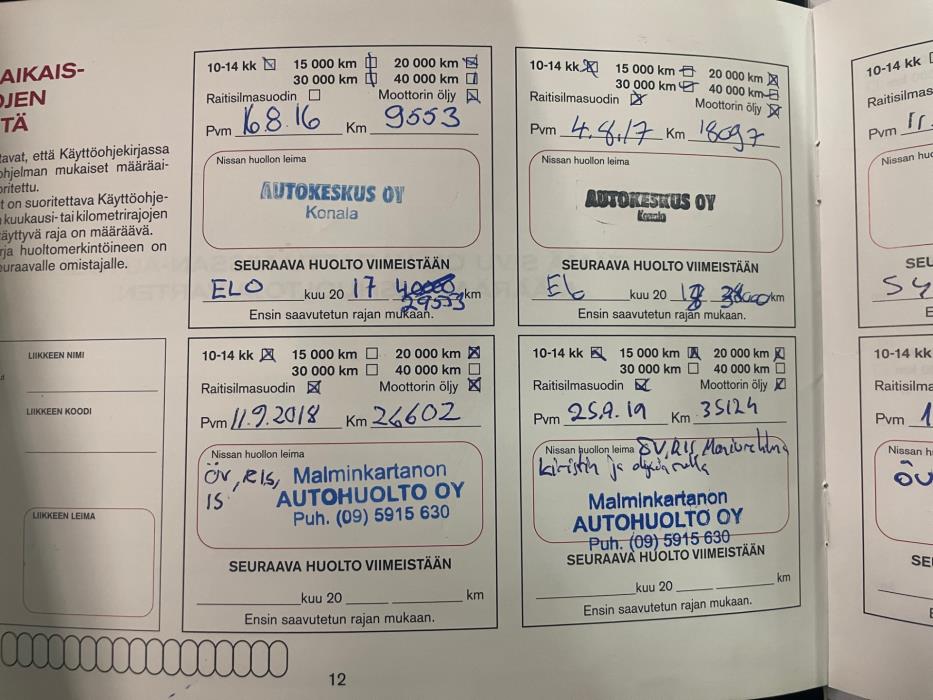 AIKAIS-
OJEN
TÄ
tavat, että Käyttöohjekirjassa
ohjelman mukaiset määräai-
oritettu.
t on suoritettava Käyttöohje-
kuukausi- tai kilometrirajojen
äyttyvä raja on määräävä.
rja huoltomerkintöineen on
euraavalle omistajalle.
LIIKKEEN NIMI
LIIKKEEN KOODI
LIIKKEEN LEIMA
10-14 kk 15 000 km 20 000 km
30 000 km 40 000 km
Raitisilmasuodin Moottorin öljy
Pvm 16.8.16 Km 9553
Nissan huollon leima
AUTOKESKUS OY
Konala
SEURAAVA HUOLTO VIIMEISTÄÄN
ELO kuu 20 17 40000 km
29553
Ensin saavutetun rajan mukaan.
10-14 kk 15 000 km 20 000 km
30 000 km 40 000 km
Raitisilmasuodin Moottorin öljy
Pvm 4.8.17 Km 18097
Nissan huollon leima
AUTOKESKUS OY
Konala
SEURAAVA HUOLTO VIIMEISTÄÄN
kuu 20 18 38000 km
Ensin saavutetun rajan mukaan.
10-14 kk 15 000 km 20 000 km
30 000 km 40 000 km
Raitisilmasuodin Moottorin öljy
Pvm 11.9.2018 Km 26602
Nissan huollon leima
ÖV, RIS,
IS
Malminkartanon
AUTOHUOLTO OY
Puh. (09) 5915 630
SEURAAVA HUOLTO VIIMEISTÄÄN
kuu 20 km
Ensin saavutetun rajan mukaan.
10-14 kk 15 000 km 20 000 km
30 000 km 40 000 km
Raitisilmasuodin Moottorin öljy
Pvm 25.9.19 Km 35124
Nissan huollon leima ÖV, RIS,
kiristin ja
Malminkartanon
AUTOHUOLTO OY
Puh. (09) 5915 630
SEURAAVA HUOLTO VIIMEISTÄÄN
kuu 20 km
Ensin saavutetun rajan mukaan.
12
10-14 kk
Raitisilmas
Pvm
Nissan huo
SEU
E
10-14 kk
Raitisilma
Pvm 1
Nissan h
ÖV
SE
E